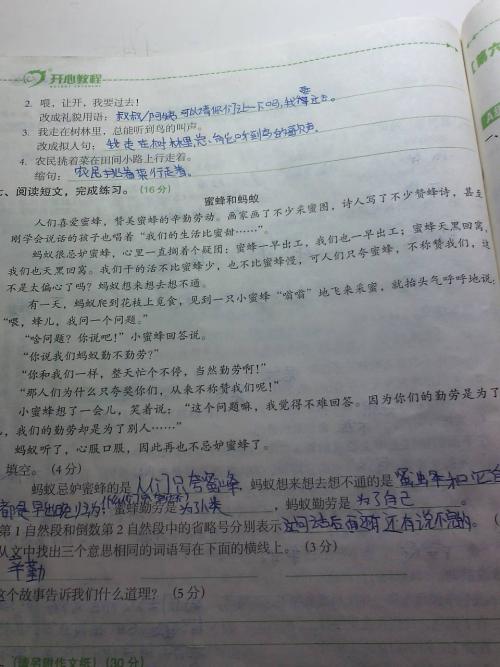 开心教程
【第六
2. 喂，让开，我要过去！
改成礼貌用语：叔叔/阿姨，可以请你们让一下吗，我要过去。
3. 我走在树林里，总能听到鸟的叫声。
改成拟人句：我走在树林里总
4. 农民挑着菜在田间小路上行走着。
缩句：农民挑着菜行走着。
七、阅读短文，完成练习。（16分）
蜜蜂和蚂蚁
人们喜爱蜜蜂，赞美蜜蜂的辛勤劳动。画家画了不少采蜜图，诗人写了不少赞蜂诗，甚至
刚学会说话的孩子也唱着“我们的生活比蜜甜……”。
蚂蚁很忌妒蜜蜂，心里一直搁着个疑团：蜜蜂一早出工，我们也一早出工；蜜蜂天黑回窝，
我们也天黑回窝。我们干的活不比蜜蜂少，也不比蜜蜂慢，可人们只夸蜜蜂，不称赞我们，这
不是太偏心了吗？蚂蚁想来想去想不通。
有一天，蚂蚁爬到花枝上觅食，见到一只小蜜蜂“嗡嗡”地飞来采蜜，就抬头气呼呼地说：
“喂，蜂儿，我问一个问题。”
“啥问题？你说吧！”小蜜蜂回答说。
“你说我们蚂蚁勤不勤劳？”
“你和我们一样，整天忙个不停，当然勤劳啊！”
“那人们为什么只夸奖你们，从来不称赞我们呢！”
小蜜蜂想了一会儿，笑着说：“这个问题嘛，我觉得不难回答。因为你们的勤劳是为了
，我们的勤劳却是为了别人……”
蚂蚁听了，心服口服，因此再也不忌妒蜜蜂了。
填空。（4分）
蚂蚁忌妒蜜蜂的是人们只夸蜜蜂，蚂蚁想来想去想不通的是蜜蜂和它
都是早出晚归为什么 蜜蜂勤劳是为了人类，蚂蚁勤劳是为了自己。
第1自然段和倒数第2自然段中的省略号分别表示这句话后面还有还有说不完的。（
从文中找出三个意思相同的词语写在下面的横线上。（3分）
辛勤
这个故事告诉我们什么道理？（5分）
（请另附作文纸）（30分）